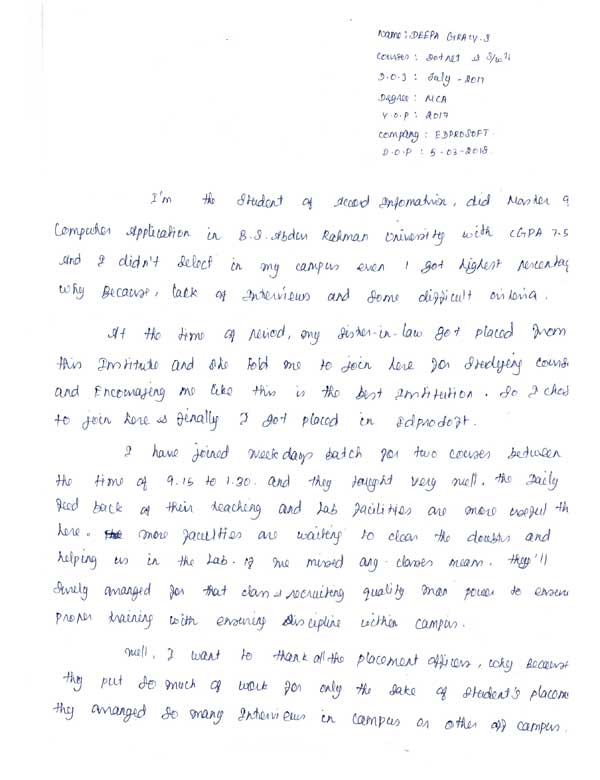 Name : DEEPA
Courses : Dotnet & S/w
D.O.J : July - 2017
Degree : MCA
Y.O.P : 2017
Company : EDPROSOFT.
D.O.P : 5-03-2018
I'm the Student of Accord Infomation, did Master
Computer Application in B.S. Abdur Rahman University with CGPA 7.5
And I didn't Select in my campus even I got highest
why Because, lack of Interviews and Some difficult criteria.
At the time of Period, my Sister-in-law Got placed from
this Institute and She told me to join here for Studying
and Encouraging me like this is the best Institution. So I
to join here & finally I Got placed in Edprosoft.
I have joined weekdays batch for two courses between
the time of 9.15 to 1.30. and they taught very well. the Daily
feed back of their teaching and Lab facilities are more usefull
here. more faculties are waiting to clear the doubts and
helping us in the Lab. If we missed any classes means. they'll
Surely arranged for that class & recruiting quality man power to
proper training with ensuring Discipline within campus.
well, I want to thank all the placement officers, why Because
they put So much of work for only the Sake of Student's
they arranged So many Interviews in campus or other off campus.